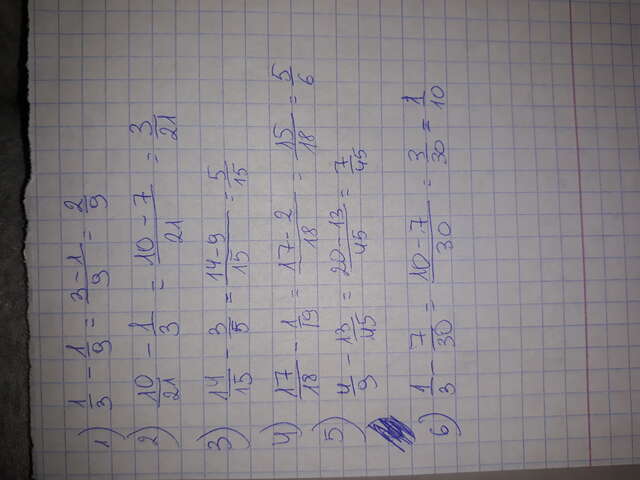 1) 1/3 - 1/9 = 3-1/9 = 2/9
2) 10/21 - 1/3 = 10-7/21 = 3/21
3) 14/15 - 3/5 = 14-9/15 = 5/15
4) 17/18 - 1/19 = 17-2/18 = 15/18 = 5/6
5) 4/9 - 13/45 = 20-13/45 = 7/45
6) 1/3 - 7/30 = 10-7/30 = 3/30 = 1/10